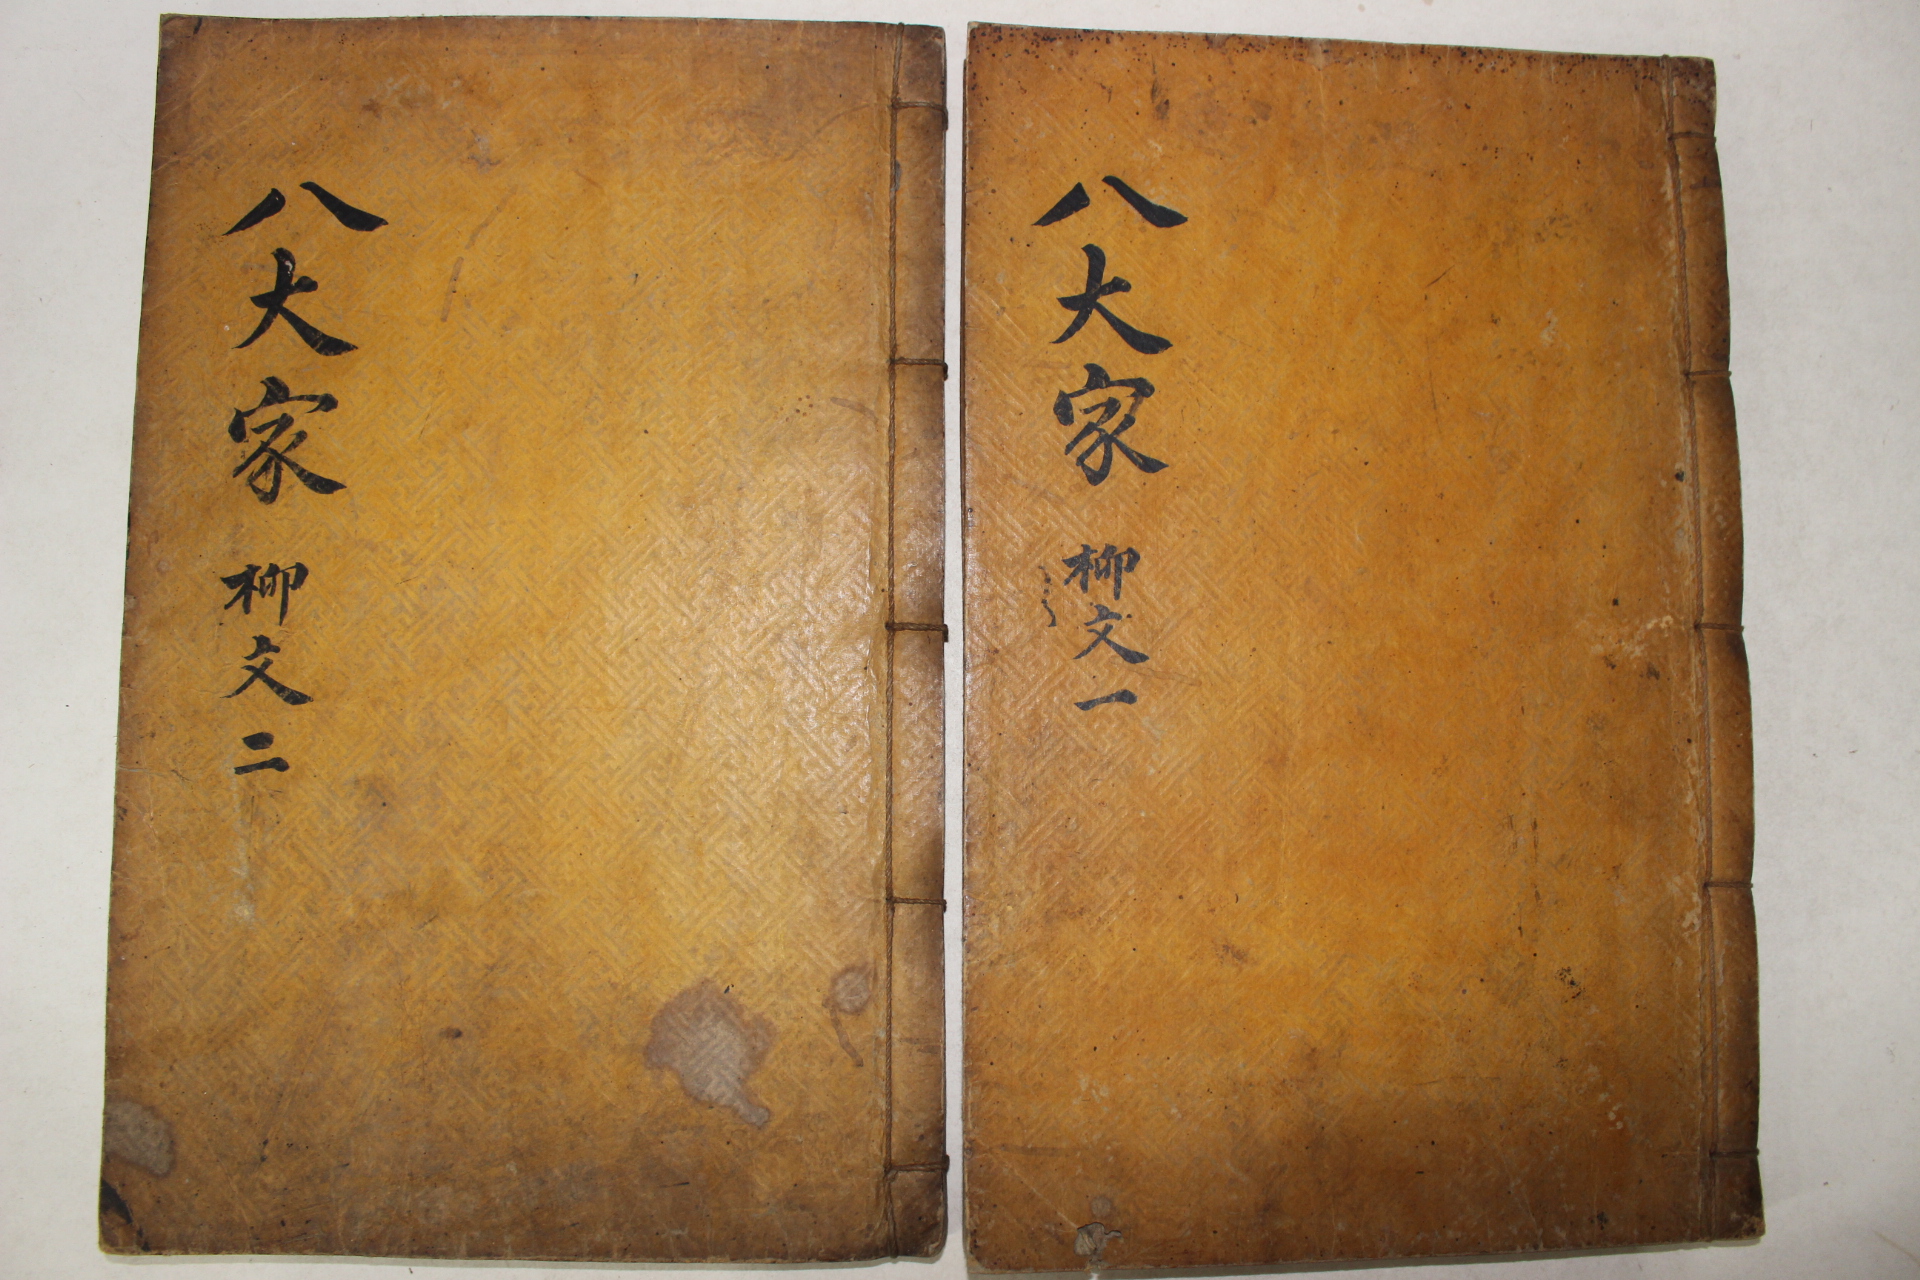 八大家 柳文一
八大家 柳文二